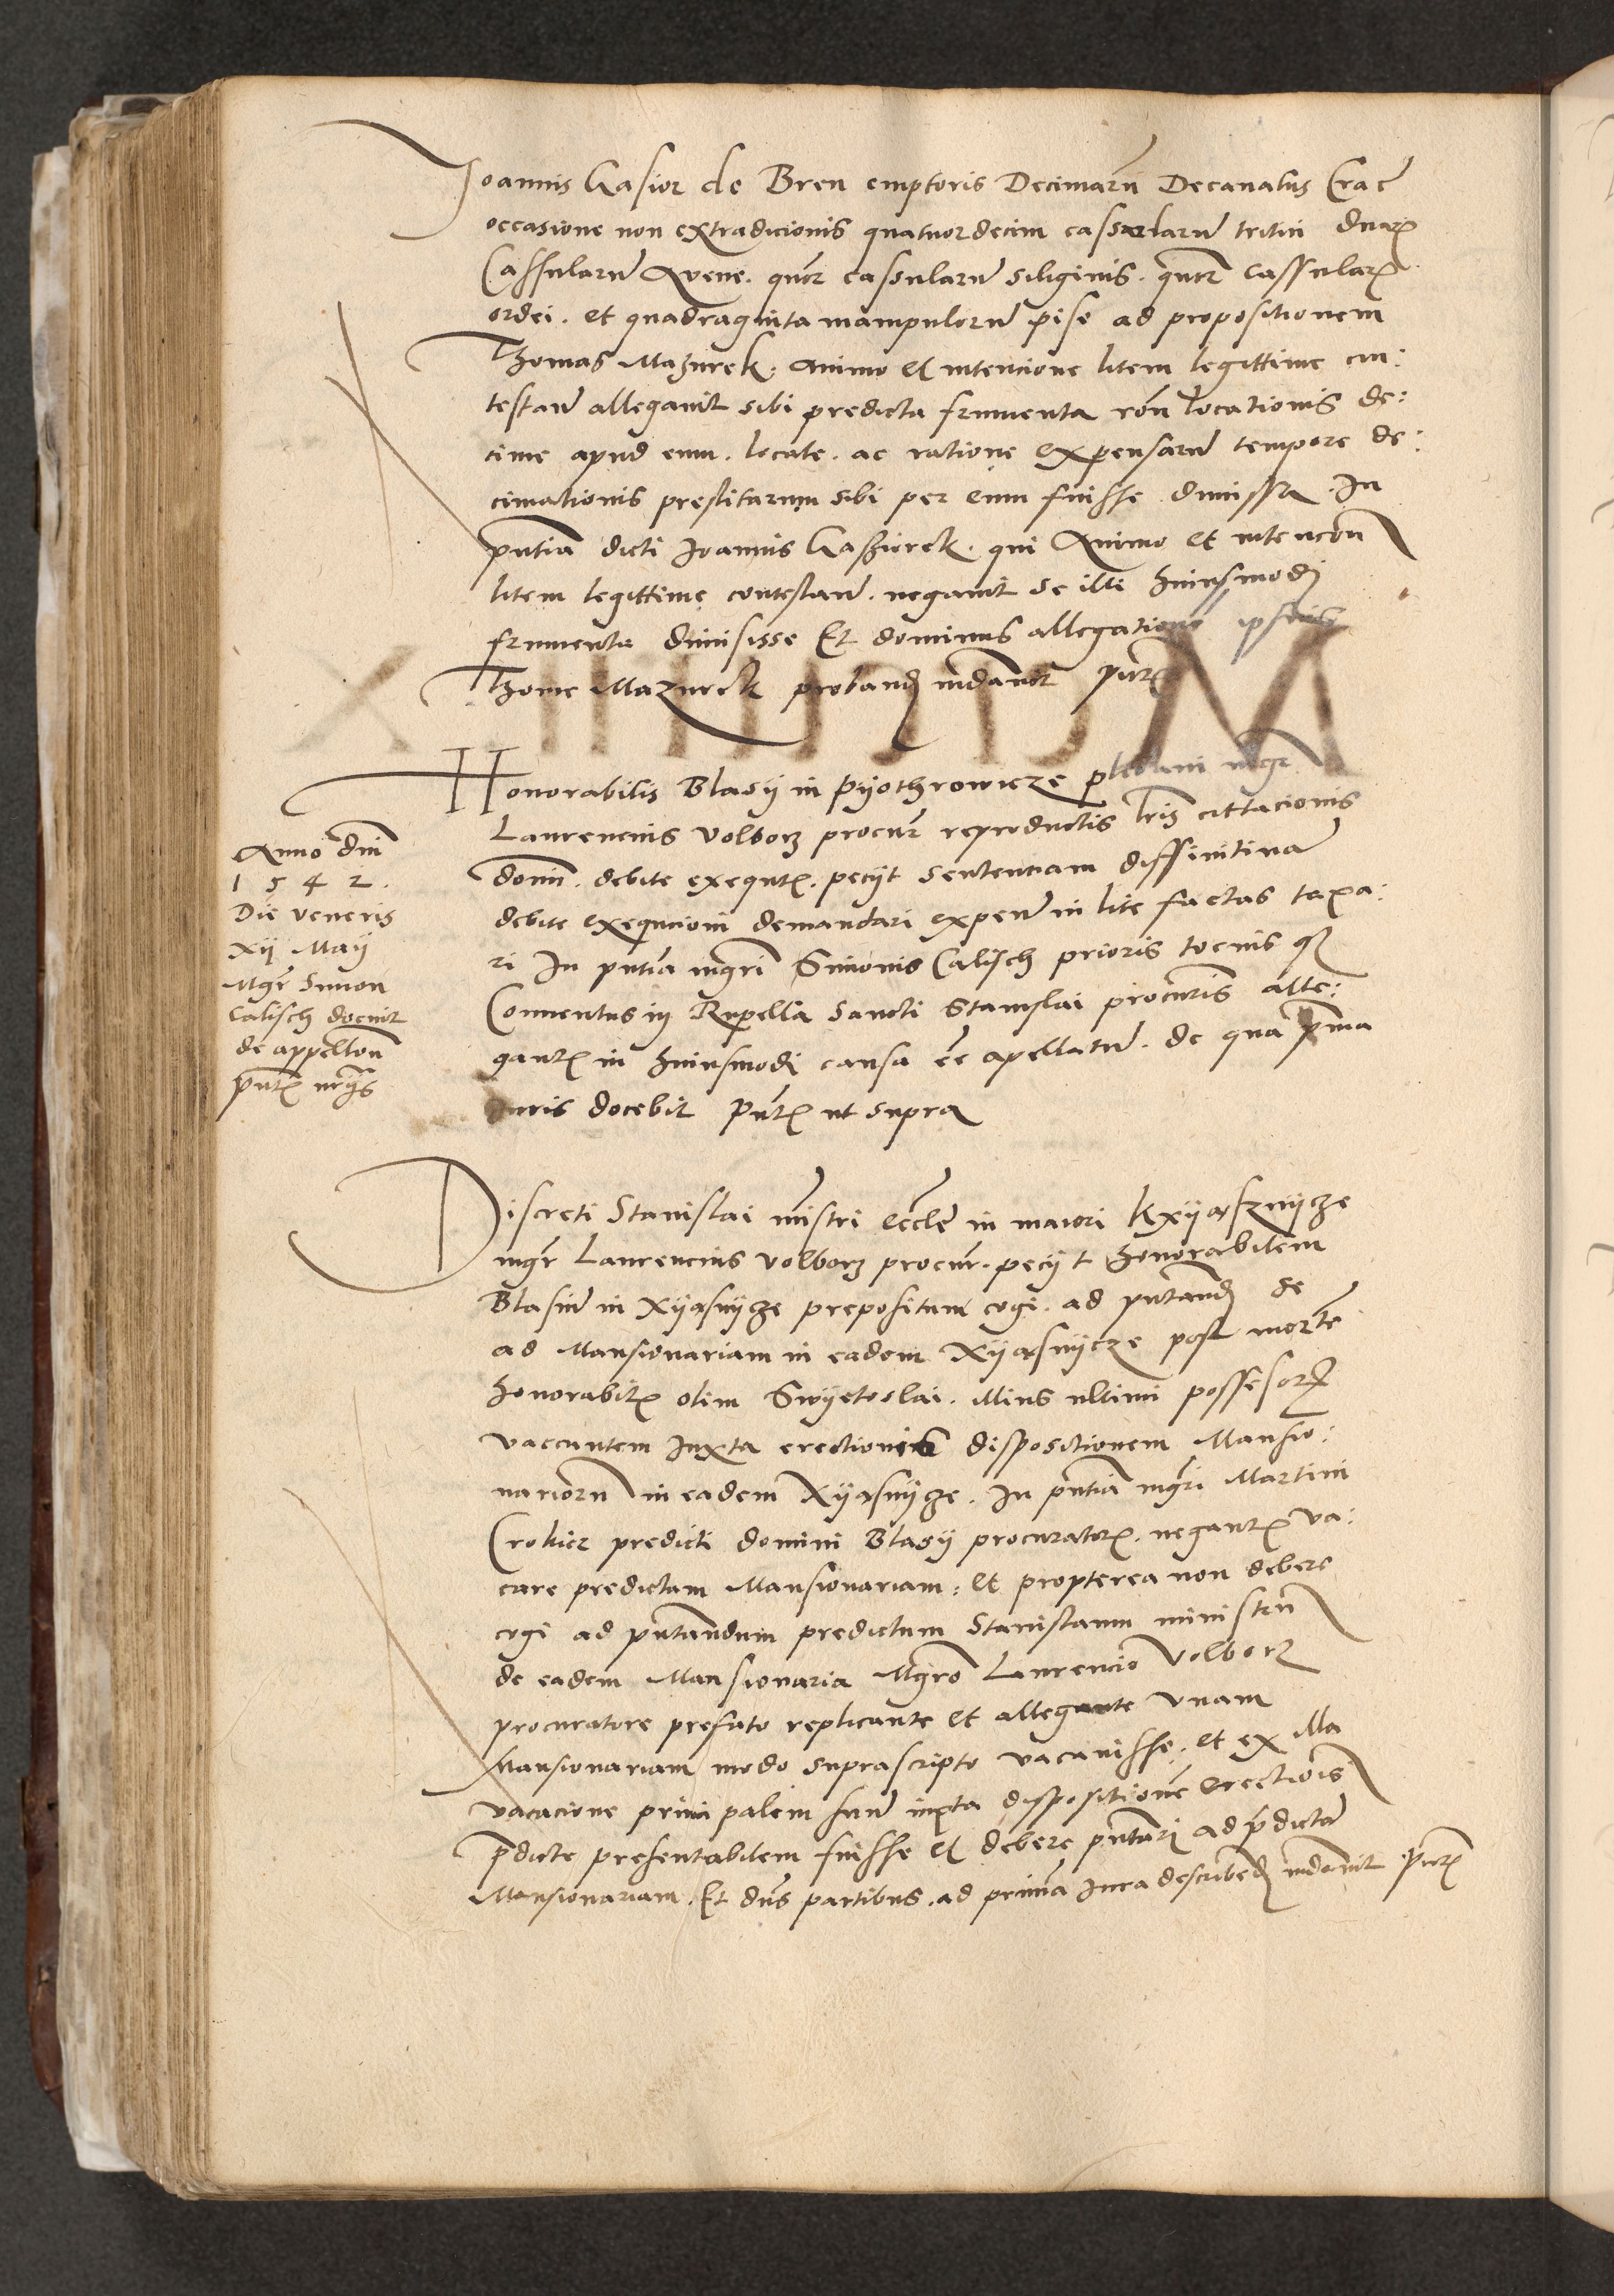 Joannis Gasior de Bren emptoris Decimarũ Decanatus Crac̃
occasione non extradicionis quatuordecim cassularũ tritici duarꝫ
Cassularũ Avene. cassularũ siliginis. Cassularꝫ
ordei. et quadraginta manipulorũ pise ad propositionem
Thomas Mazurek. animo et intencione litem legittime con:
testanđ allegavit sibi predicta frumenta rõne locationis de:
cime apud eum. locate. ac ratione expensarũ tempore de:
cimationis prestitarum sibi per eum fuisse dimissa. In
pñtia dicti Joannis Gassiorek. qui Animo et intencõn
litem legittime contestanđ. negavit se illi huiusmodi
frumenta dimisisse Et dominus allegationẽ ipsius
Thome Mazurek probanđ mdavit Pñtꝫ
Honorabilis Blasij in Pyothrowicze plebani mgr
Laurencius Volborz procur̃ reproductis lr̃is cittacionis
domi. debite exequtꝫ. pecijt sentenciam diffinitivã
debite exequcioni demandari expenš in lite factas taxa:
ri In pñtia mgr̃i Simonis Calisch prioris tocius qꝫ
Conventus in Rupella Sancti Stanislai procur̃is alle:
gantꝫ in huiusmodi causa eẽ apellatũ. de qua pr̃ma
Juris docebit Pñtꝫ ut supra
Anno dñi
1542.
Die veneris
xij May
Mgr̃ Simon
Calisch docuit
de appellõn
pñtꝫ
Discreti Stanislai mĩstri eccľe in maiori Kxyasznycze
mgr̃ Laurencius Volborz procur̃. pecijt honorabilem
Blasiũ in Xyasnycze prepositum cogi. ad pñtanđ se
ad Mansionariam in eadem Xyasnycze post mortẽ
honorabilꝫ olim Swyetoslai. illius ultimi possesorꝫ
vaccantem Juxta erectionis dispositionem Mansio:
nariorũ in eadem Xyasnycze. In pñtia mgr̃i Martini
Crokier predicti domini Blasij procuratorꝫ. negantꝫ va:
care predictam Mansionariam: et propterea non debere
cogi ad pñtandum predictum Stanislaum ministrũ
de eadem Mansionaria Mgr̃o Laurencio Volborz
procuratore prefato replicante et allegante unam
Mansionariam modo suprascripto vacavisse. et ex illa
vacacione principalem suũ iuxta dispositionẽ erectiõis
p̃dicte presentabilem fuisse et debere pñtari ad p̃dictã
Mansionariam. Et dñs partibus. ad primã Jura describenđ mdavit Pñtꝫ